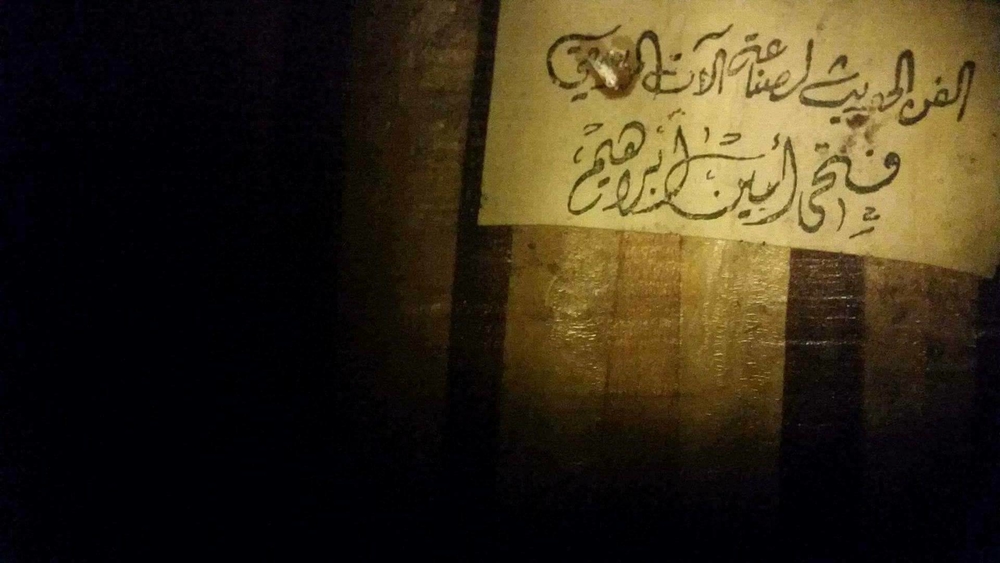 الفن الحديث لصناعة آلات الموسيقى
فتحى أمين إبراهيم